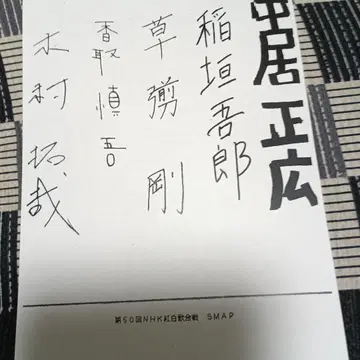 中居正広
稲垣吾郎
草彅 剛
香取慎吾
木村拓哉
第50回NHK紅白歌合戦 SMAP